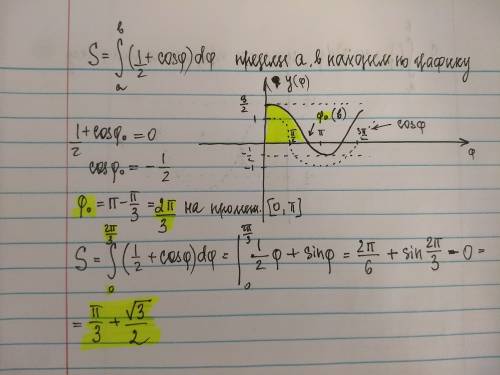 S = ∫ₐᵇ (1/2 + cosφ) dφ пределы a, b находим по графику
y(φ)
3/2
1
φ₀ (b)
cosφ
π/2 π 3π/2 φ
-1/2
-1
1/2 + cosφ₀ = 0
cosφ₀ = -1/2
φ₀ = π - π/3 = 2π/3 на промеж. [0, π]
S = ∫₀^(2π/3) (1/2 + cosφ) dφ = |₀^(2π/3) 1/2 φ + sinφ = 2π/6 + sin 2π/3 - 0 =
= π/3 + √3/2